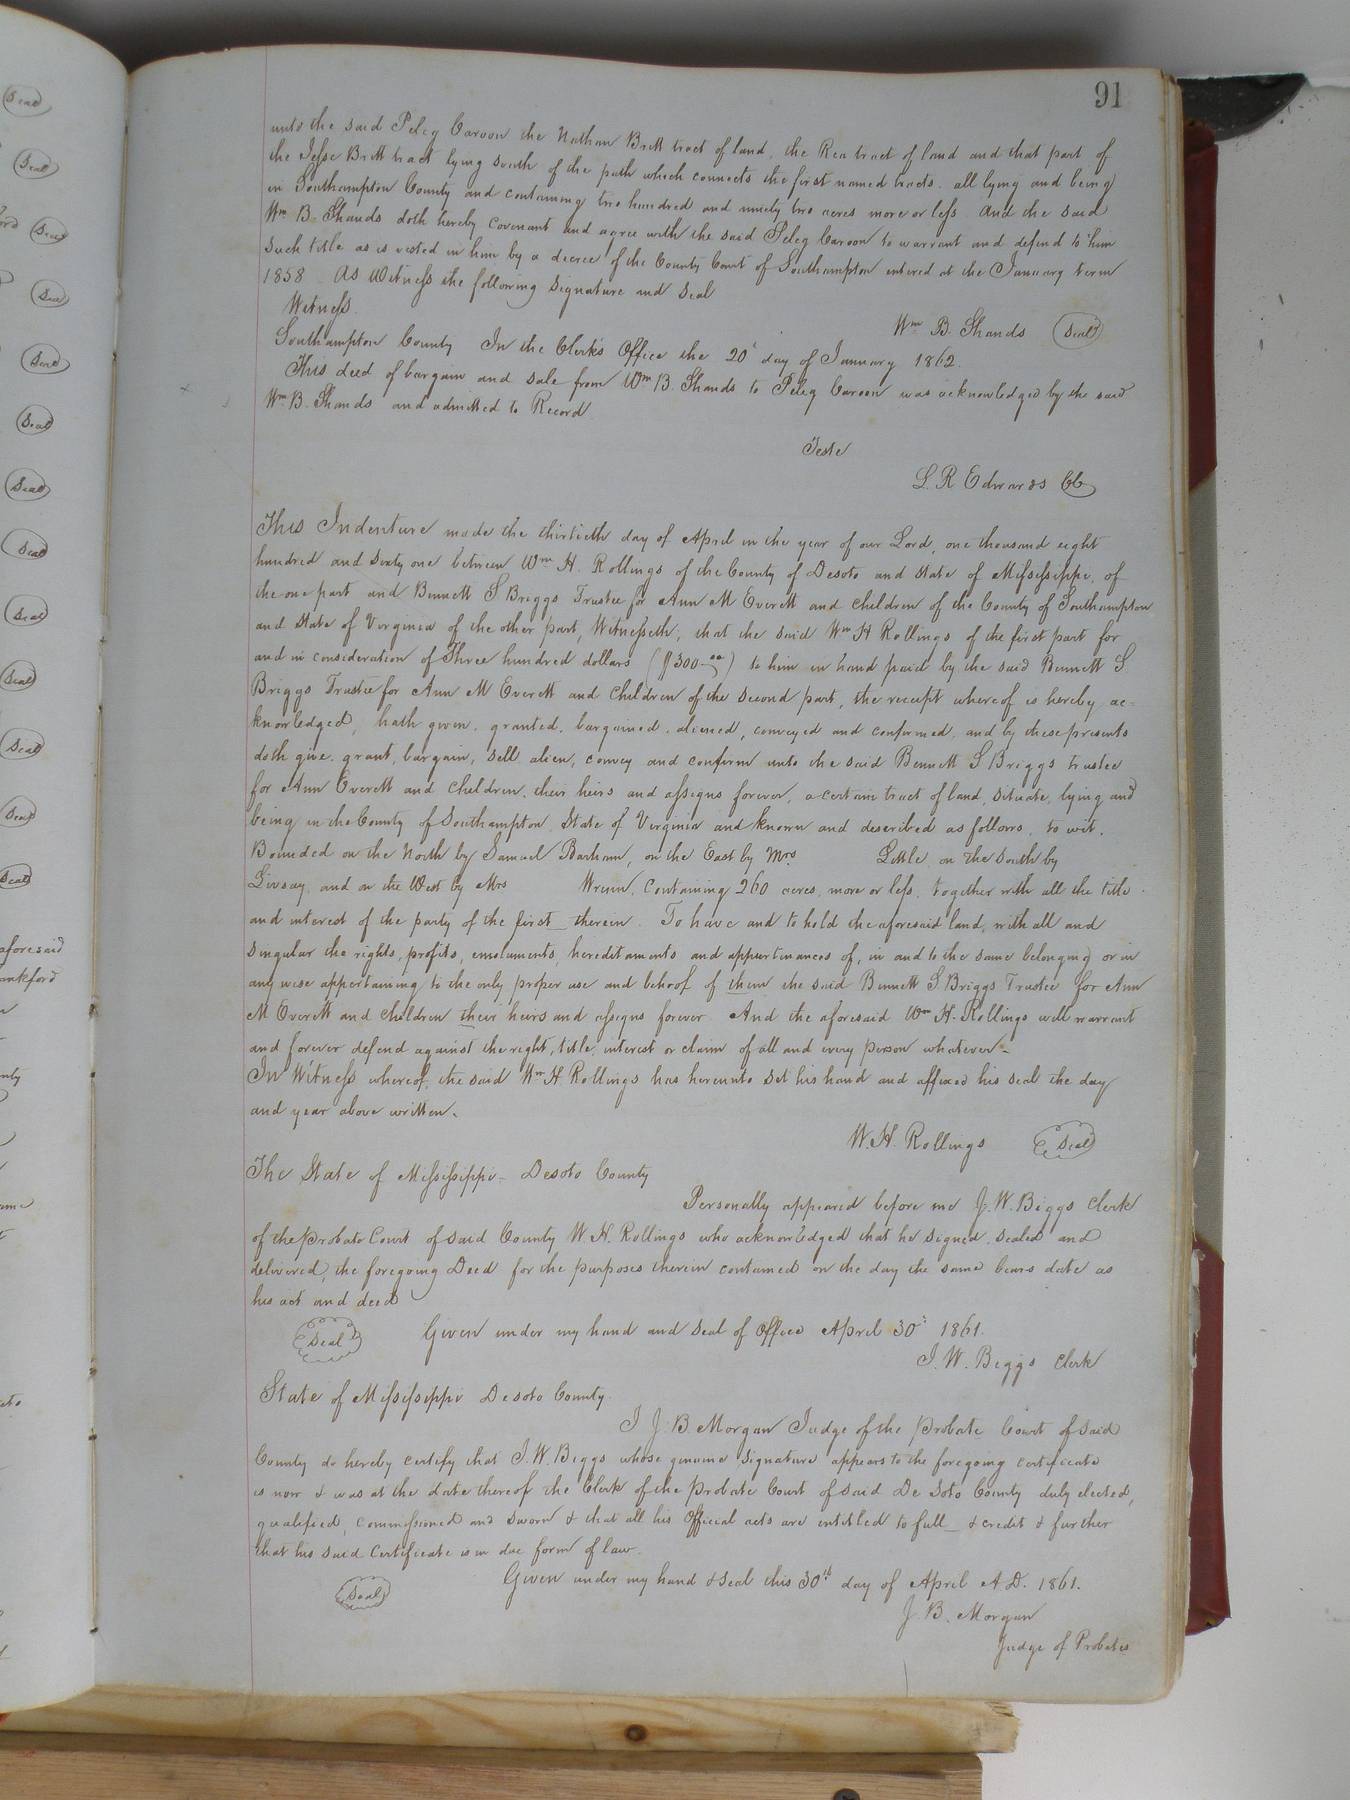 91
unto the said Peleg Caroon the Nathan Britt tract of land, the Rea tract of land and that part of
the Jesse Britt tract lying south of the path which connects the first named tracts. all lying and being
in Southampton County and containing two hundred and ninety two acres more or less. And the said
Wm B. Shands doth hereby covenant and agree with the said Peleg Caroon to warrant and defend to him
such title as is vested in him by a decree of the County Court of Southampton entered at the January term
1858 As Witness the following signature and seal
Witness.
Wm B. Shands Seal
Southampton County In the Clerk's Office the 20 day of January 1862.
This deed of bargain and sale from Wm B. Shands to Peleg Caroon was acknowledged by the said
Wm B. Shands and admitted to Record
Teste
L. R Edwards CC
This Indenture made the thirtieth day of April in the year of our Lord, one thousand eight
hundred and sixty one between Wm H. Rollings of the County of Desoto and State of Mississippi, of
the one part and Bennett S Briggs Trustee for Ann M Everett and children of the County of Southampton
and State of Virginia of the other part, Witnesseth, that the said Wm H Rollings of the first part for
and in consideration of Three hundred dollars ($300.00) to him in hand paid by the said Bennett S
Briggs Trustee for Ann M Everett and children of the second part, the receipt whereof is hereby ac-
knowledged, hath given, granted, bargained, aliened, conveyed and confirmed, and by these presents
doth give, grant, bargain, sell, alien, convey and confirm unto the said Bennett S Briggs trustee
for Ann Everett and children, their heirs and assigns forever, a certain tract of land, situate, lying and
being in the County of Southampton, State of Virginia and known and described as follows, to wit,
Bounded on the North by Samuel Barham, on the East by Mrs Little, on the South by
Livsay, and on the West by Mrs containing 260 acres, more or less, together with all the title
and interest of the party of the first therein. To have and to hold the aforesaid land, with all and
singular the rights, profits, emoluments, hereditaments and appurtenances of, in and to the same belonging or in
any wise appertaining to the only proper use and behoof of them the said Bennett S Briggs Trustee for Ann
M Everett and children their heirs and assigns forever. And the aforesaid Wm H. Rollings will warrant
and forever defend against the right, title, interest or claim of all and every person whatever-
In Witness whereof, the said Wm H. Rollings has hereunto set his hand and affixed his seal the day
and year above written.
W. H. Rollings Seal
The State of Mississippi- Desoto County
Personally appeared before me J. W. Biggs Clerk
of the Probate Court of said County W. H. Rollings who acknowledged that he signed, sealed and
delivered, the foregoing Deed for the purposes therein contained on the day the same bears date as
his act and deed
Seal Given under my hand and seal of Office April 30 1861.
J. W. Biggs Clerk
State of Mississippi Desoto County.
I J. B. Morgan Judge of the Probate Court of said
County do hereby certify that J. W. Biggs whose genuine signature appears to the foregoing certificate
is now & was at the date thereof the Clerk of the Probate Court of said De Soto County duly elected,
qualified, commissioned and sworn & that all his Official acts are entitled to full & credit & further
that his said Certificate is in due form of law.
Seal Given under my hand & seal this 30th day of April A.D. 1861.
J. B. Morgan
Judge of Probate